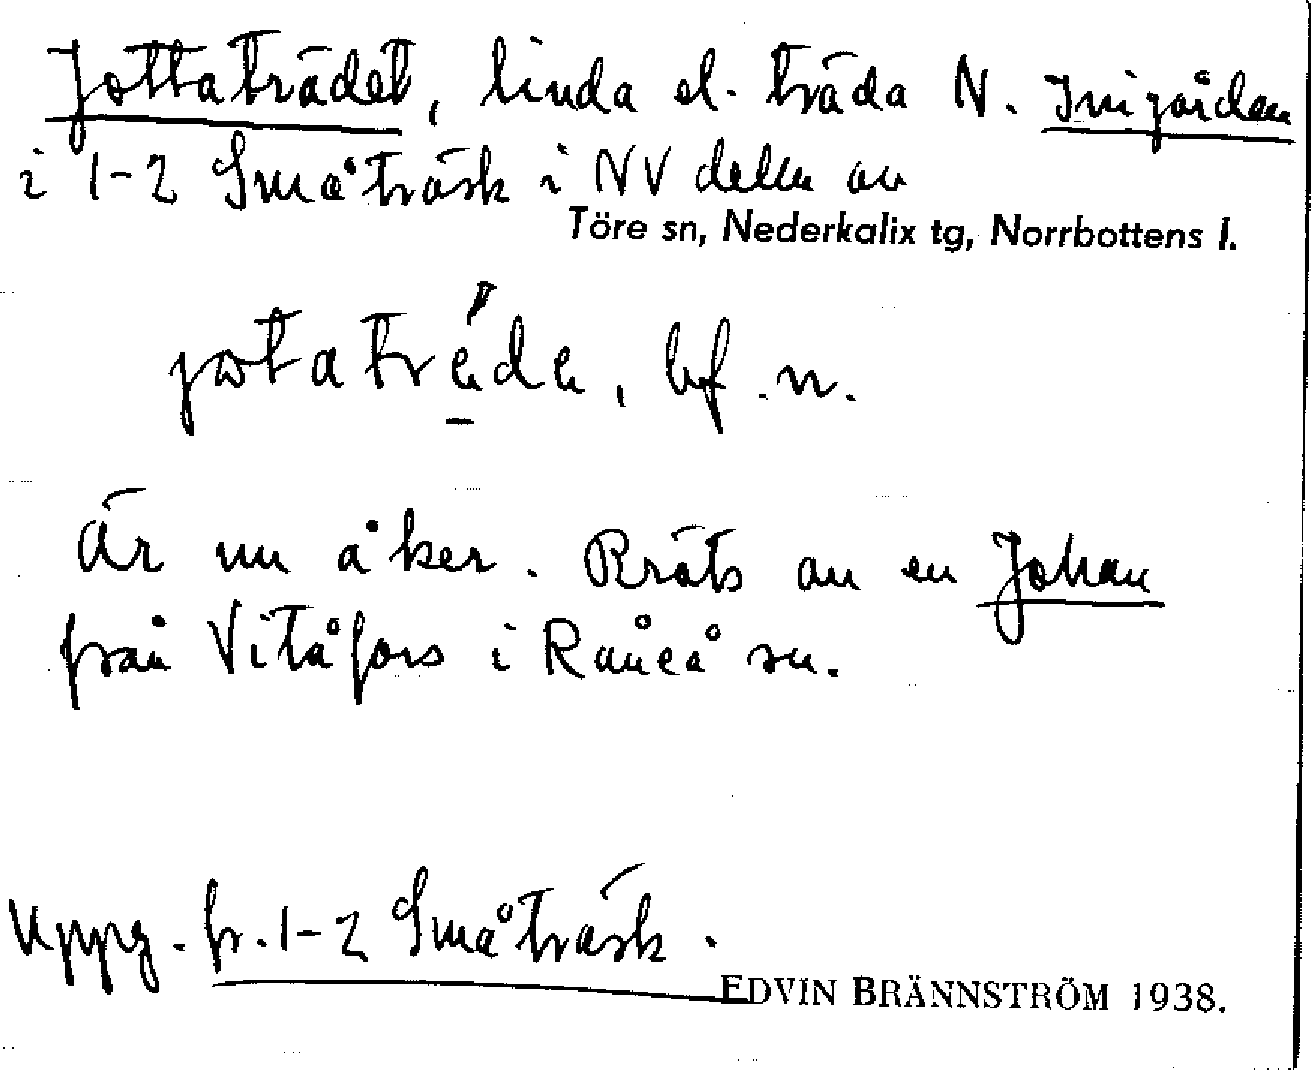 Jottaträdet, linda el. träda N. Inigården
i 1-2 Småträsk i NV delen av
Töre sn, Nederkalix tg, Norrbottens l.
jotaträde, bf. n.
Är nu åker. Kräts av en Johan
från Vitåfors i Råneå sn.
Uppg. fr. 1-2 Småträsk.
EDVIN BRÄNNSTRÖM 1938.